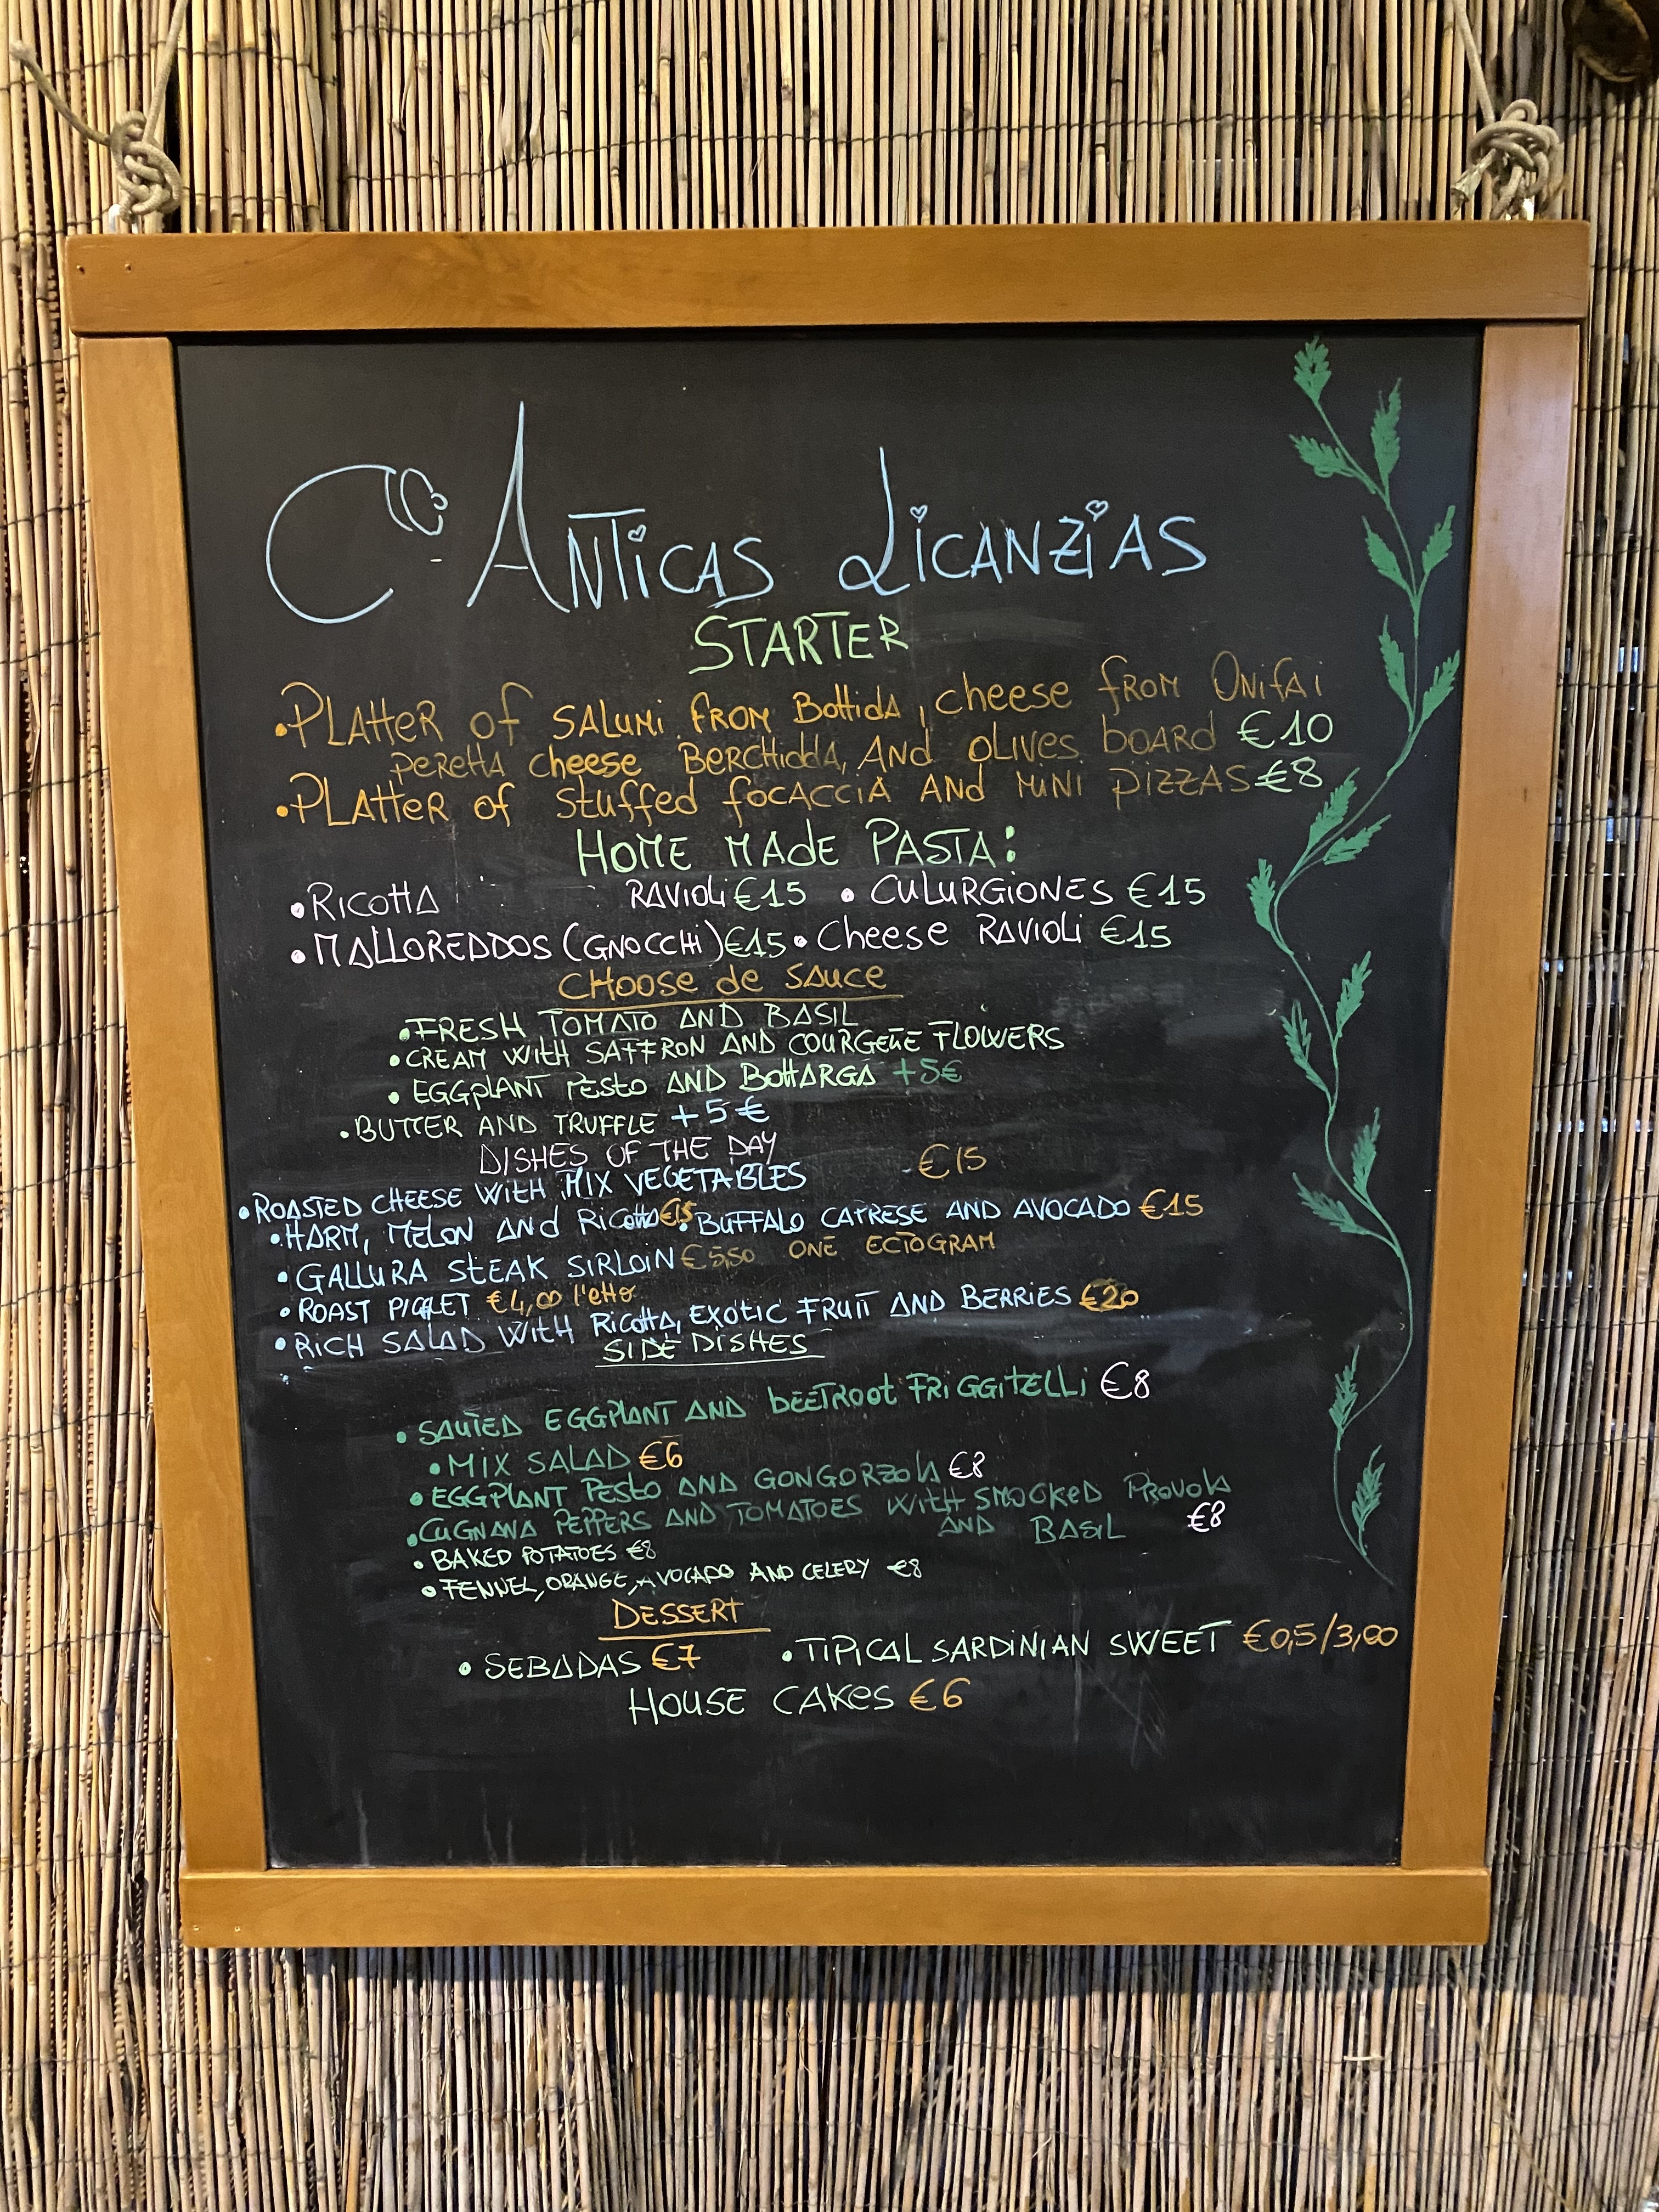 Anticas Licanzias
STARTER
• Platter of Salumi from Bottida, cheese from Onifai
peretta cheese Berchidda, and olives board €10
• Platter of stuffed focaccia and mini pizzas €8
HOME MADE PASTA:
• Ricotta Ravioli €15 • Culurgiones €15
• Malloreddos (gnocchi) €15 • Cheese Ravioli €15
Choose de sauce
• FRESH TOMATO AND BASIL
• CREAM WITH SAFFRON AND COURGETTE FLOWERS
• EGGPLANT PESTO AND BOTTARGA +5€
• BUTTER AND TRUFFLE +5€
DISHES OF THE DAY
• ROASTED CHEESE WITH MIX VEGETABLES €15
• HARM, MELON AND Ricotta €15 • BUFFALO CATRESE AND AVOCADO €15
• GALLURA STEAK SIRLOIN €5,50 ONE ECTOGRAM
• ROAST PIGLET €4,00 l'etto
• RICH SALAD WITH Ricotta, EXOTIC FRUIT AND BERRIES €20
SIDE DISHES
• SAUTED EGGPLANT AND BEETROOT FRIGGITELLI €8
• MIX SALAD €6
• EGGPLANT PESTO AND GONGORZOLA €8
• CUGNANA PEPPERS AND TOMATOES WITH SMOCKED PROVOLA
AND BASIL €8
• BAKED POTATOES €8
• FENNEL, ORANGE, AVOCADO AND CELERY €8
DESSERT
• SEBADAS €7 • TIPICAL SARDINIAN SWEET €0,5/3,00
HOUSE CAKES €6